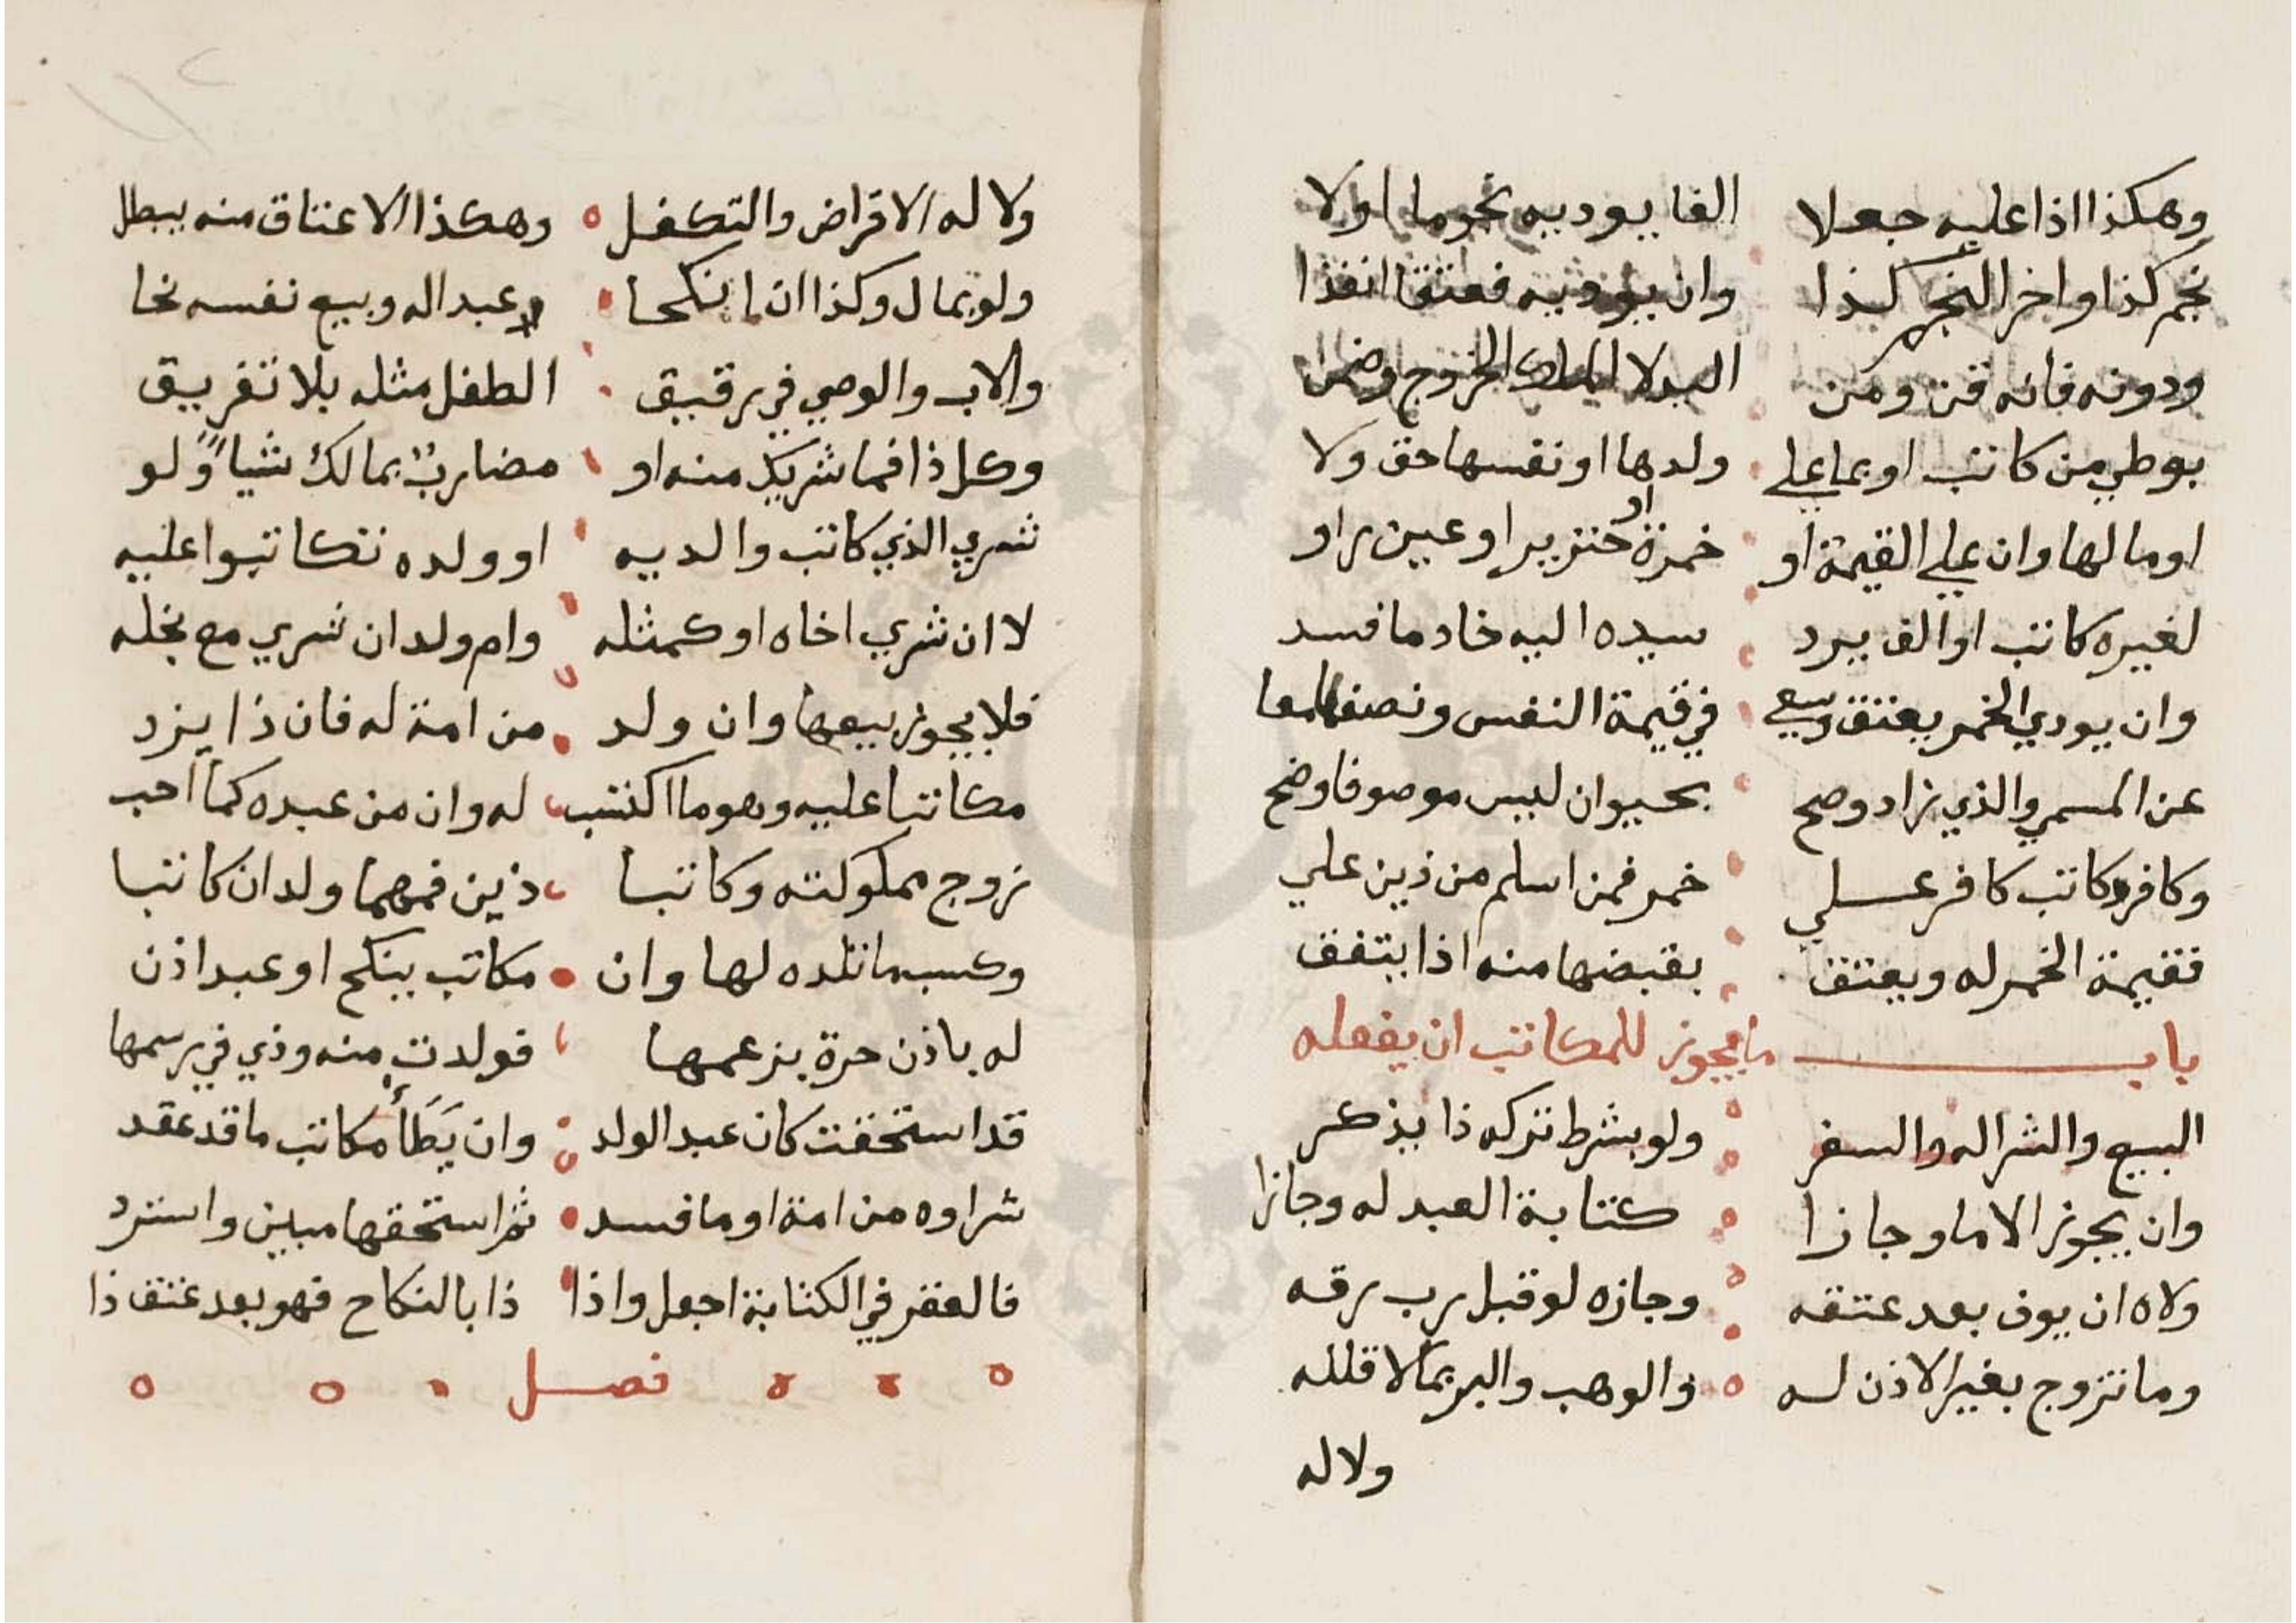 وهكذا اذا عليه جعلا الفا يوديه نجوما اولا
نجم كذا واخر النجم كذا وان يوديه فعتقا انفذا
ودونه فانه قن ومن الخروج وضمن
بوطي من كاتب او بما علي ولدها او نفسها حق ولا
او مالها وان علي القيمة او خمرة او خنزير او عين راو
لغيره كاتب او الف يرد سيده اليه خادما فسد
وان يودي الخمر يعتق وسعي في قيمة النفس ونصفا معا
عن المسمي والذي زاد وصح بحيوان ليس موصوفا وضح
وكافر كاتب كافر علي خمر فمن اسلم من ذين علي
فقيمة الخمر له ويعتق بقبضها منه اذا يتفق
باب ما يجوز للمكاتب ان يفعله
البيع والشرا له والسفر ولو بشرط تركه ذا يذكر
وان يجوز الاما وجازا كتابة العبد له وجازا
ولاه ان يوف بعد عتقه وجازه لو قبل رب رقه
وما تزوج بغير الاذن له والوهب والبر بما لا قلله
ولا له
ولا له الاقراض والتكفل وهكذا الاعتاق منه يبطل
ولو بمال وكذا ان انكحا عبدا له وبيع نفسه نحا
والاب والوصي في رقيق الطفل مثله بلا تفريق
وكل ذا فما شريك منه او مضارب بمالك شيا ولو
شري الذي كاتب والديه او ولده تكاتبوا عليه
لا ان شري اخاه او كمثله وام ولد ان شري مع نجله
فلا يجوز بيعها وان ولد من امة له فان ذا يزد
مكاتبا عليه وهو ما اكتسب له وان من عبده كما احب
زوج مملوكته وكاتبا ذين فمهما ولدان كاتبا
وكسب ما تلده لها وان مكاتب ينكح او عبد اذن
له باذن حرة بزعمها فولدت منه وذي في رسمها
قد استحقت كان عبد الولد وان يَطَأ مكاتب ما قد عقد
شراوه من امة او ما فسد ثم استحقها مبين واسترد
فالعقر في الكتابة اجعل واذا ذا بالنكاح فهو بعد عتق ذا
فصل